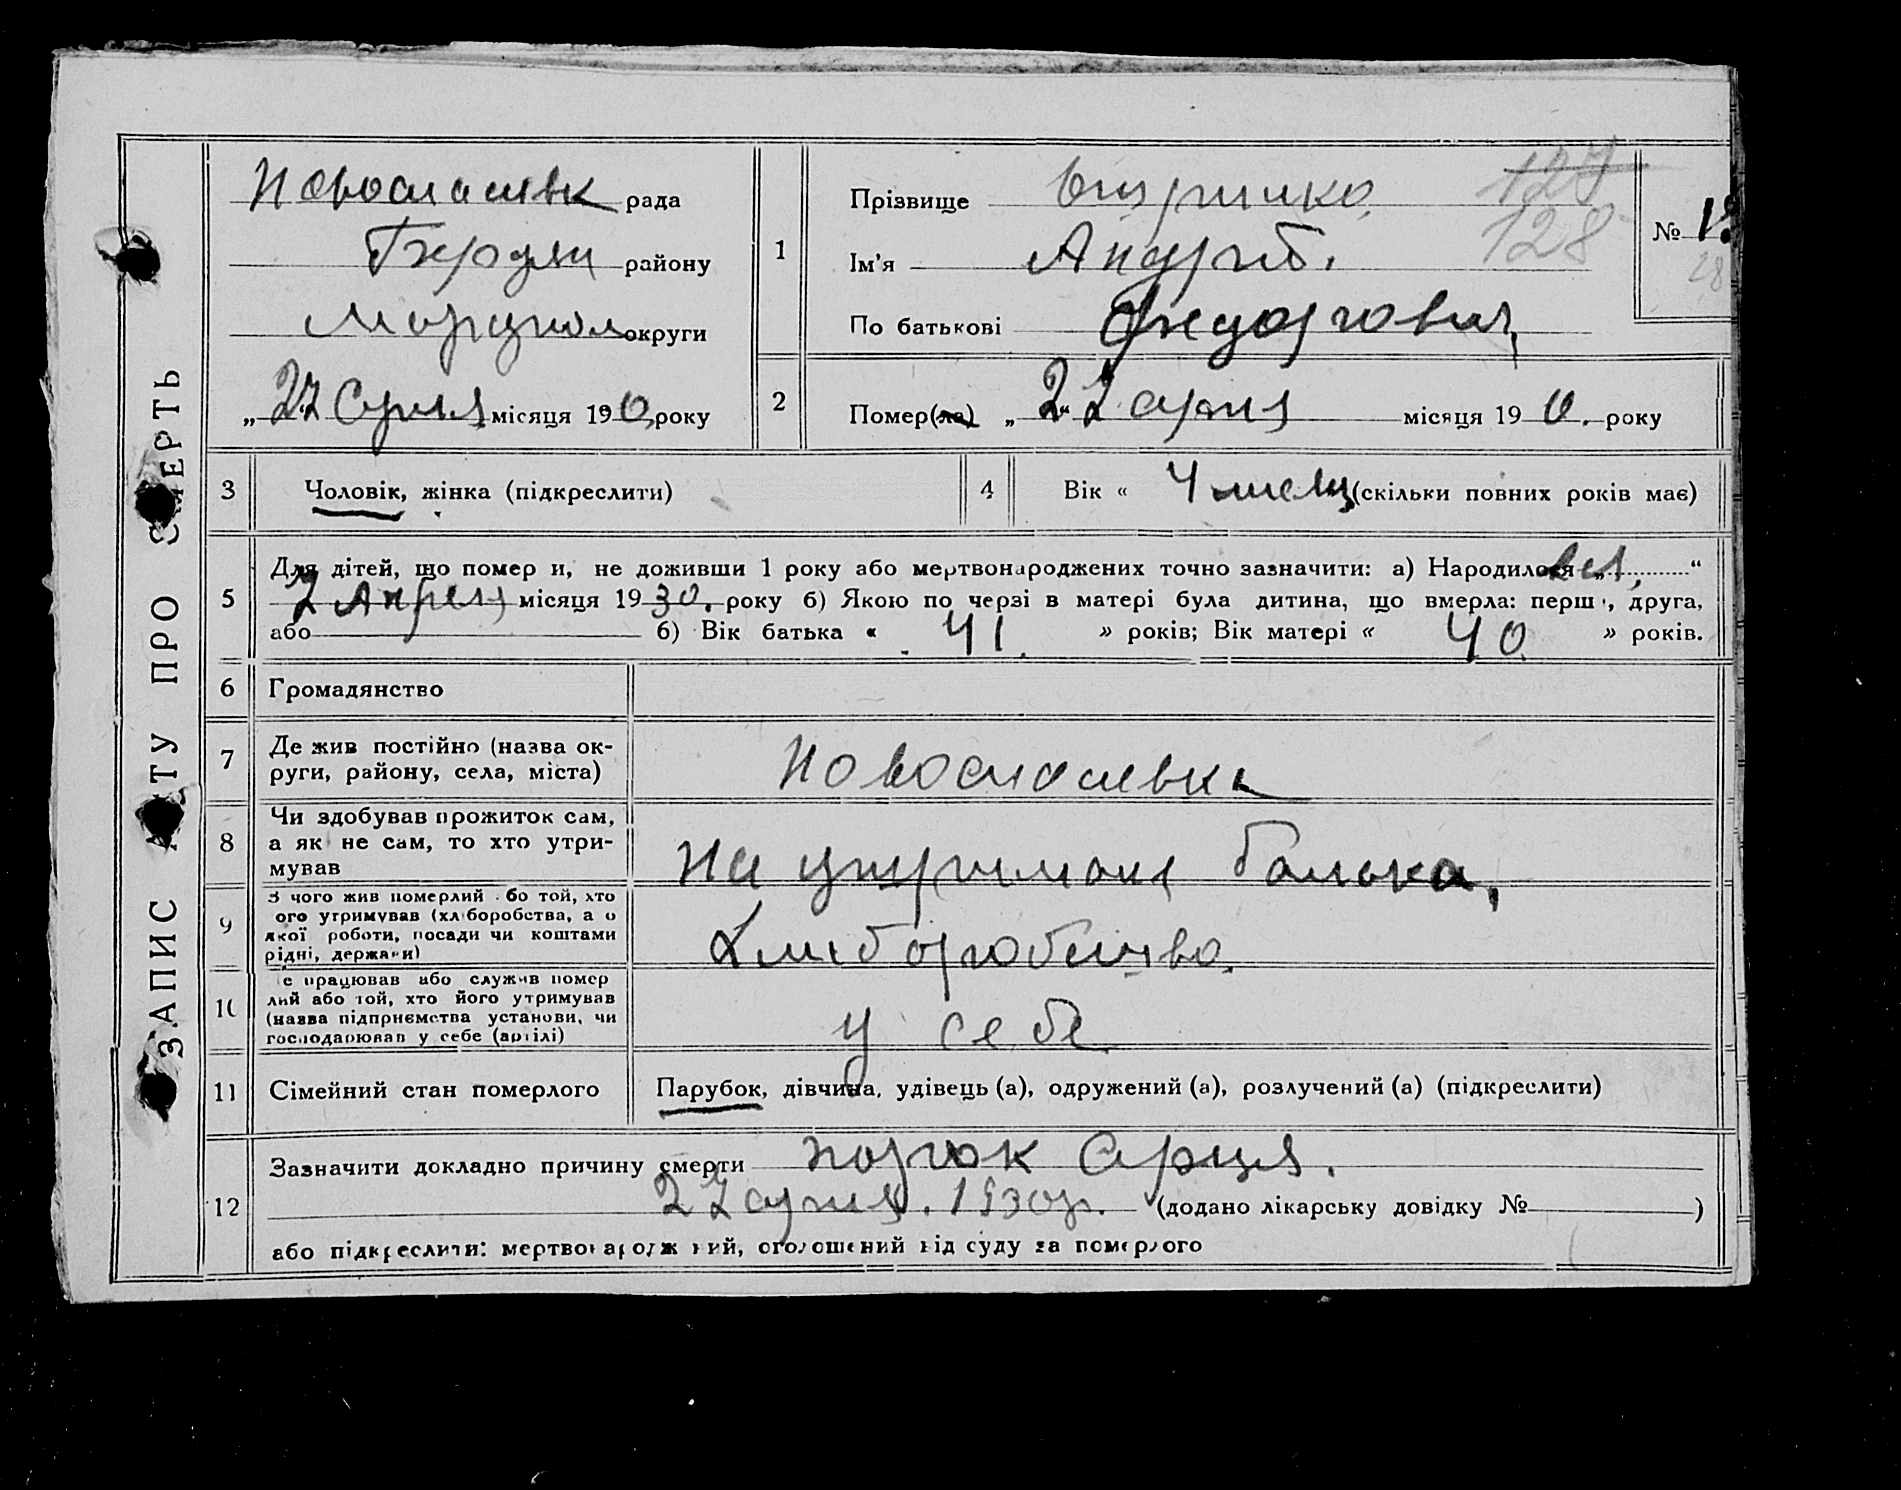 ЗАПИС АКТУ ПРО СМЕРТЬ
Новоспасівк рада
Бердян району
Маріупол округи
„27 Серпня місяця 1930 року
1
Прізвище
Ім’я Андрій.
По батькові Федорович
127
128
№
28
2
Помер(ла) „27 серпня місяця 1930. року
3 Чоловік, жінка (підкреслити)
4 Вік « 4 месяц (скільки повних років має)
5 Для дітей, що помер и, не доживши 1 року або мертвонароджених точно зазначити: а) Народилося „ “
7 Апреля місяця 1930. року б) Якою по черзі в матері була дитина, що вмерла: перш , друга,
або 6) Вік батька « 41. » років; Вік матері « 40 » років.
6 Громадянство
7 Де жив постійно (назва ок-
руги, району, села, міста)
Новоспасівка
8 Чи здобував прожиток сам,
а як не сам, то хто утри-
мував
На утримані батька,
9 З чого жив померлий бо той, хто
ого утримував (хліборобства, а о
якої роботи, посади чи коштами
рідні, держави)
Хліборобство.
10 е працював або служив помер
лий або той, хто його утримував
(назва підприємства установи, чи
господарював у себе (артілі)
у себе
11 Сімейний стан померлого
Парубок, дівчина, удівець (а), одружений (а), розлучений (а) (підкреслити)
12 Зазначити докладно причину смерти порок серця.
27 серпня. 1930р. (додано лікарську довідку № )
або підкреслити: мертвонароджений, оголошений від суду за померлого